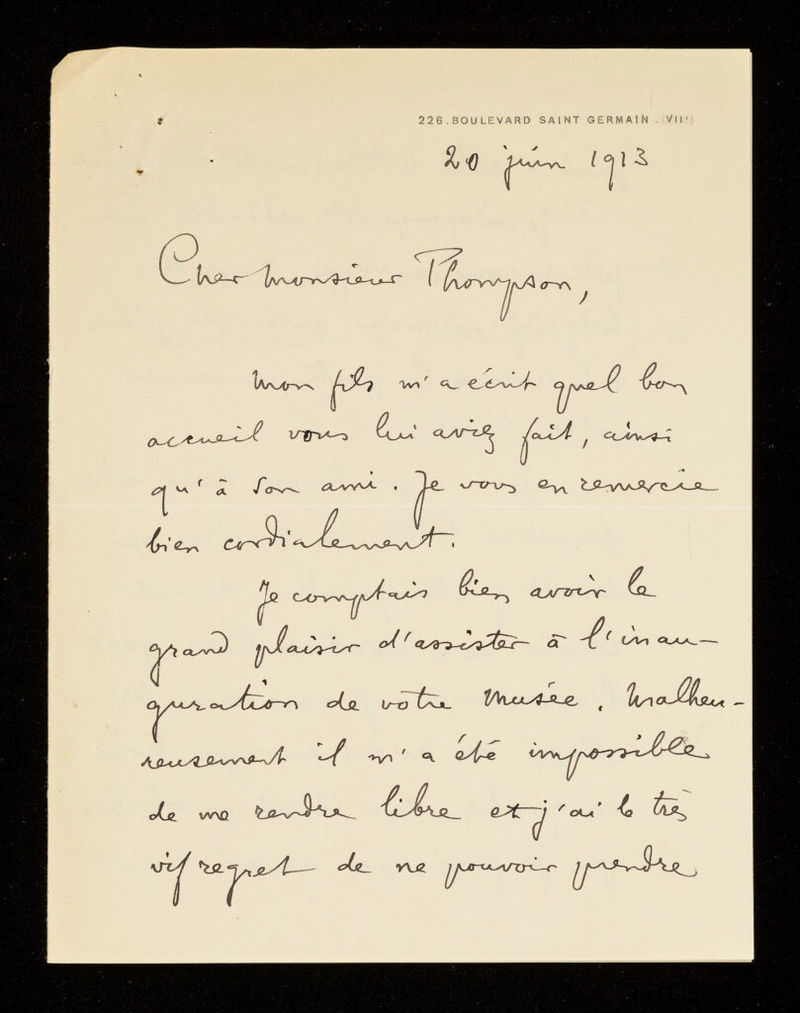 226. BOULEVARD SAINT GERMAIN. (VIIe)
20 juin 1913
Cher Monsieur Thompson,
Mon fils m'a écrit quel bon
accueil vous lui aviez fait, ainsi
qu'à son ami. Je vous en remercie
bien cordialement.
Je comptais bien avoir le
grand plaisir d'assister à l'inau-
guration de votre Musée. Malheu-
reusement il m'a été impossible
de me rendre libre et j'ai le très
vif regret de ne pouvoir prendre